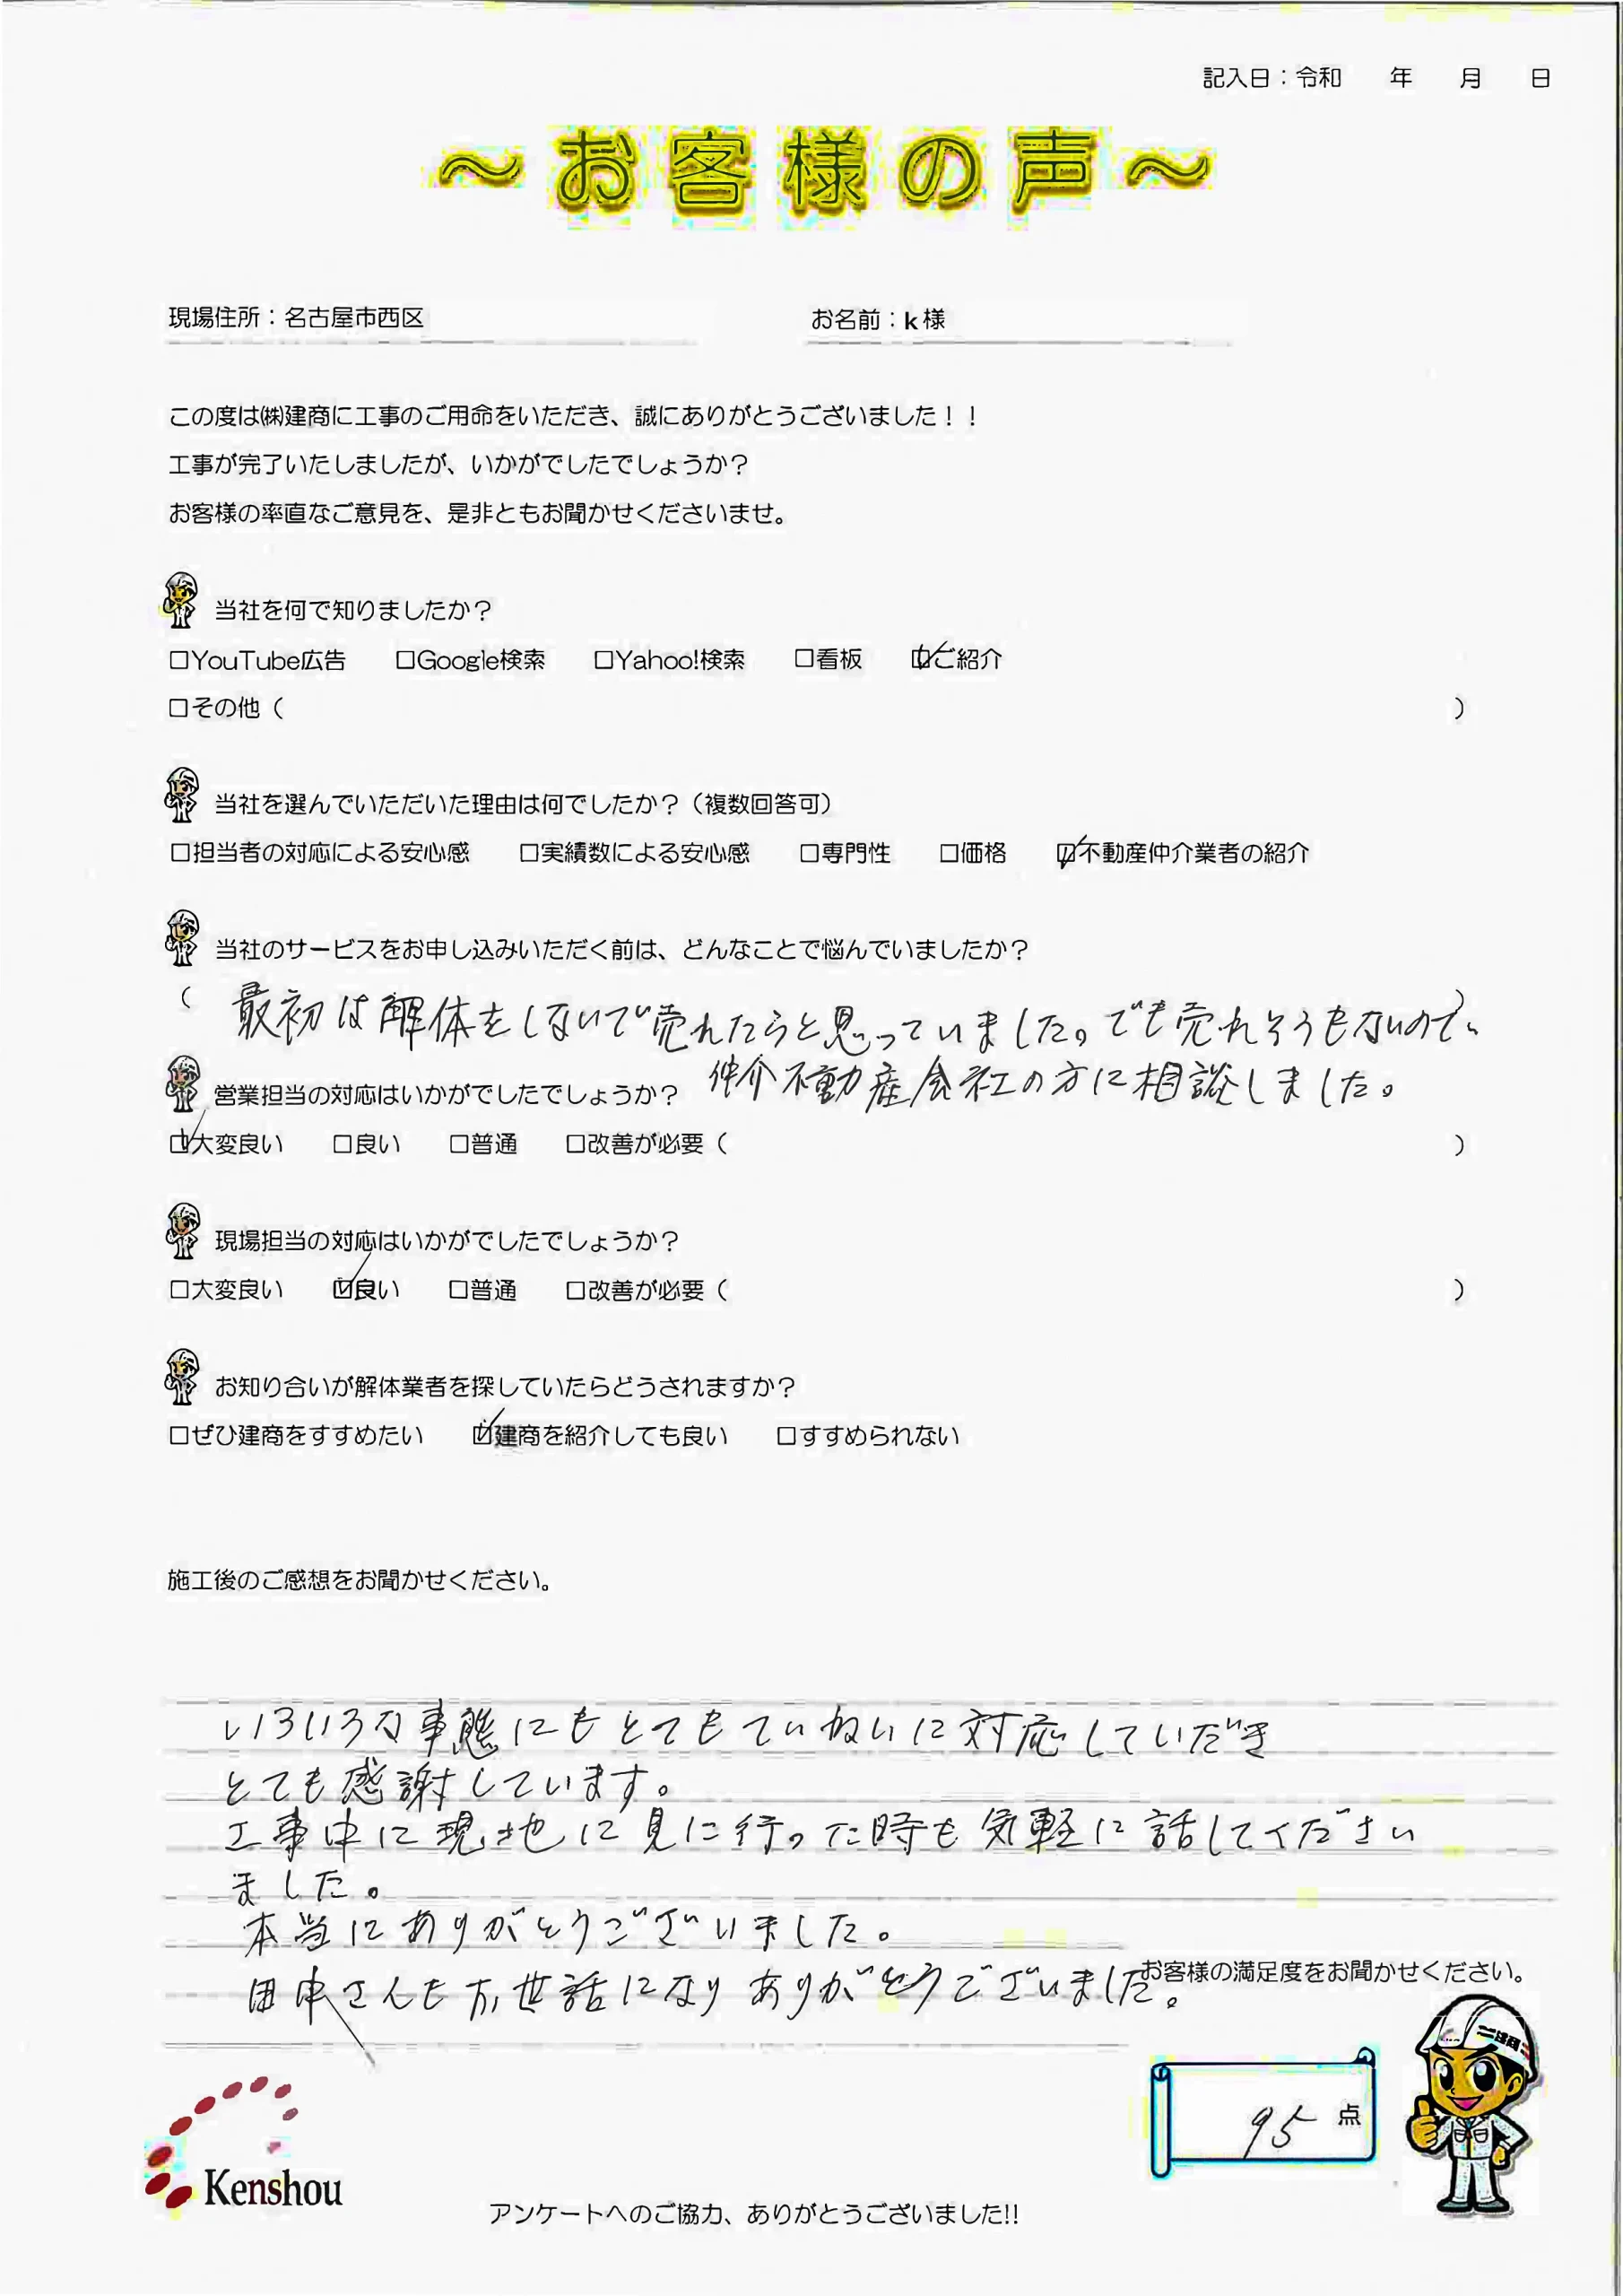 記入日：令和　　年　　月　　日
～お客様の声～
現場住所：名古屋市西区　　お名前：k様
この度は㈱建商に工事のご用命をいただき、誠にありがとうございました！！
工事が完了いたしましたが、いかがでしたでしょうか？
お客様の率直なご意見を、是非ともお聞かせくださいませ。
当社を何で知りましたか？
□YouTube広告　□Google検索　□Yahoo!検索　□看板　☑ご紹介
□その他（　　）
当社を選んでいただいた理由は何でしたか？（複数回答可）
□担当者の対応による安心感　□実績数による安心感　□専門性　□価格　☑不動産仲介業者の紹介
当社のサービスをお申し込みいただく前は、どんなことで悩んでいましたか？
（最初は解体をしないで売れたらと思っていました。でも売れそうもないので、）
仲介不動産会社の方に相談しました。
営業担当の対応はいかがでしたでしょうか？
☑大変良い　□良い　□普通　□改善が必要（　　）
現場担当の対応はいかがでしたでしょうか？
□大変良い　☑良い　□普通　□改善が必要（　　）
お知り合いが解体業者を探していたらどうされますか？
□ぜひ建商をすすめたい　☑建商を紹介しても良い　□すすめられない
施工後のご感想をお聞かせください。
いろいろな事態にもとてもていねいに対応していだき
とても感謝しています。
工事中に現地に見に行った時も気軽に話してください
ました。
本当にありがとうございました。
田中さんもお世話になりありがとうございました。
お客様の満足度をお聞かせください。
建商
95点
Kenshou
アンケートへのご協力、ありがとうございました!!